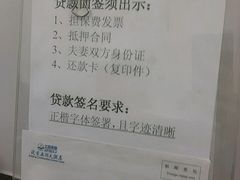 贷款面签须出示：
1、担保费发票
2、抵押合同
3、夫妻双方身份证
4、还款卡（复印件）
贷款签名要求：
正楷字体签署，且字迹清晰